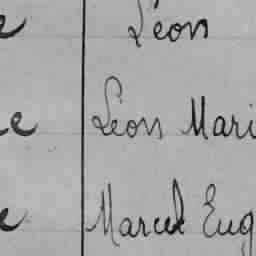 e Léon
e Léon Mari
e Marcel Eug